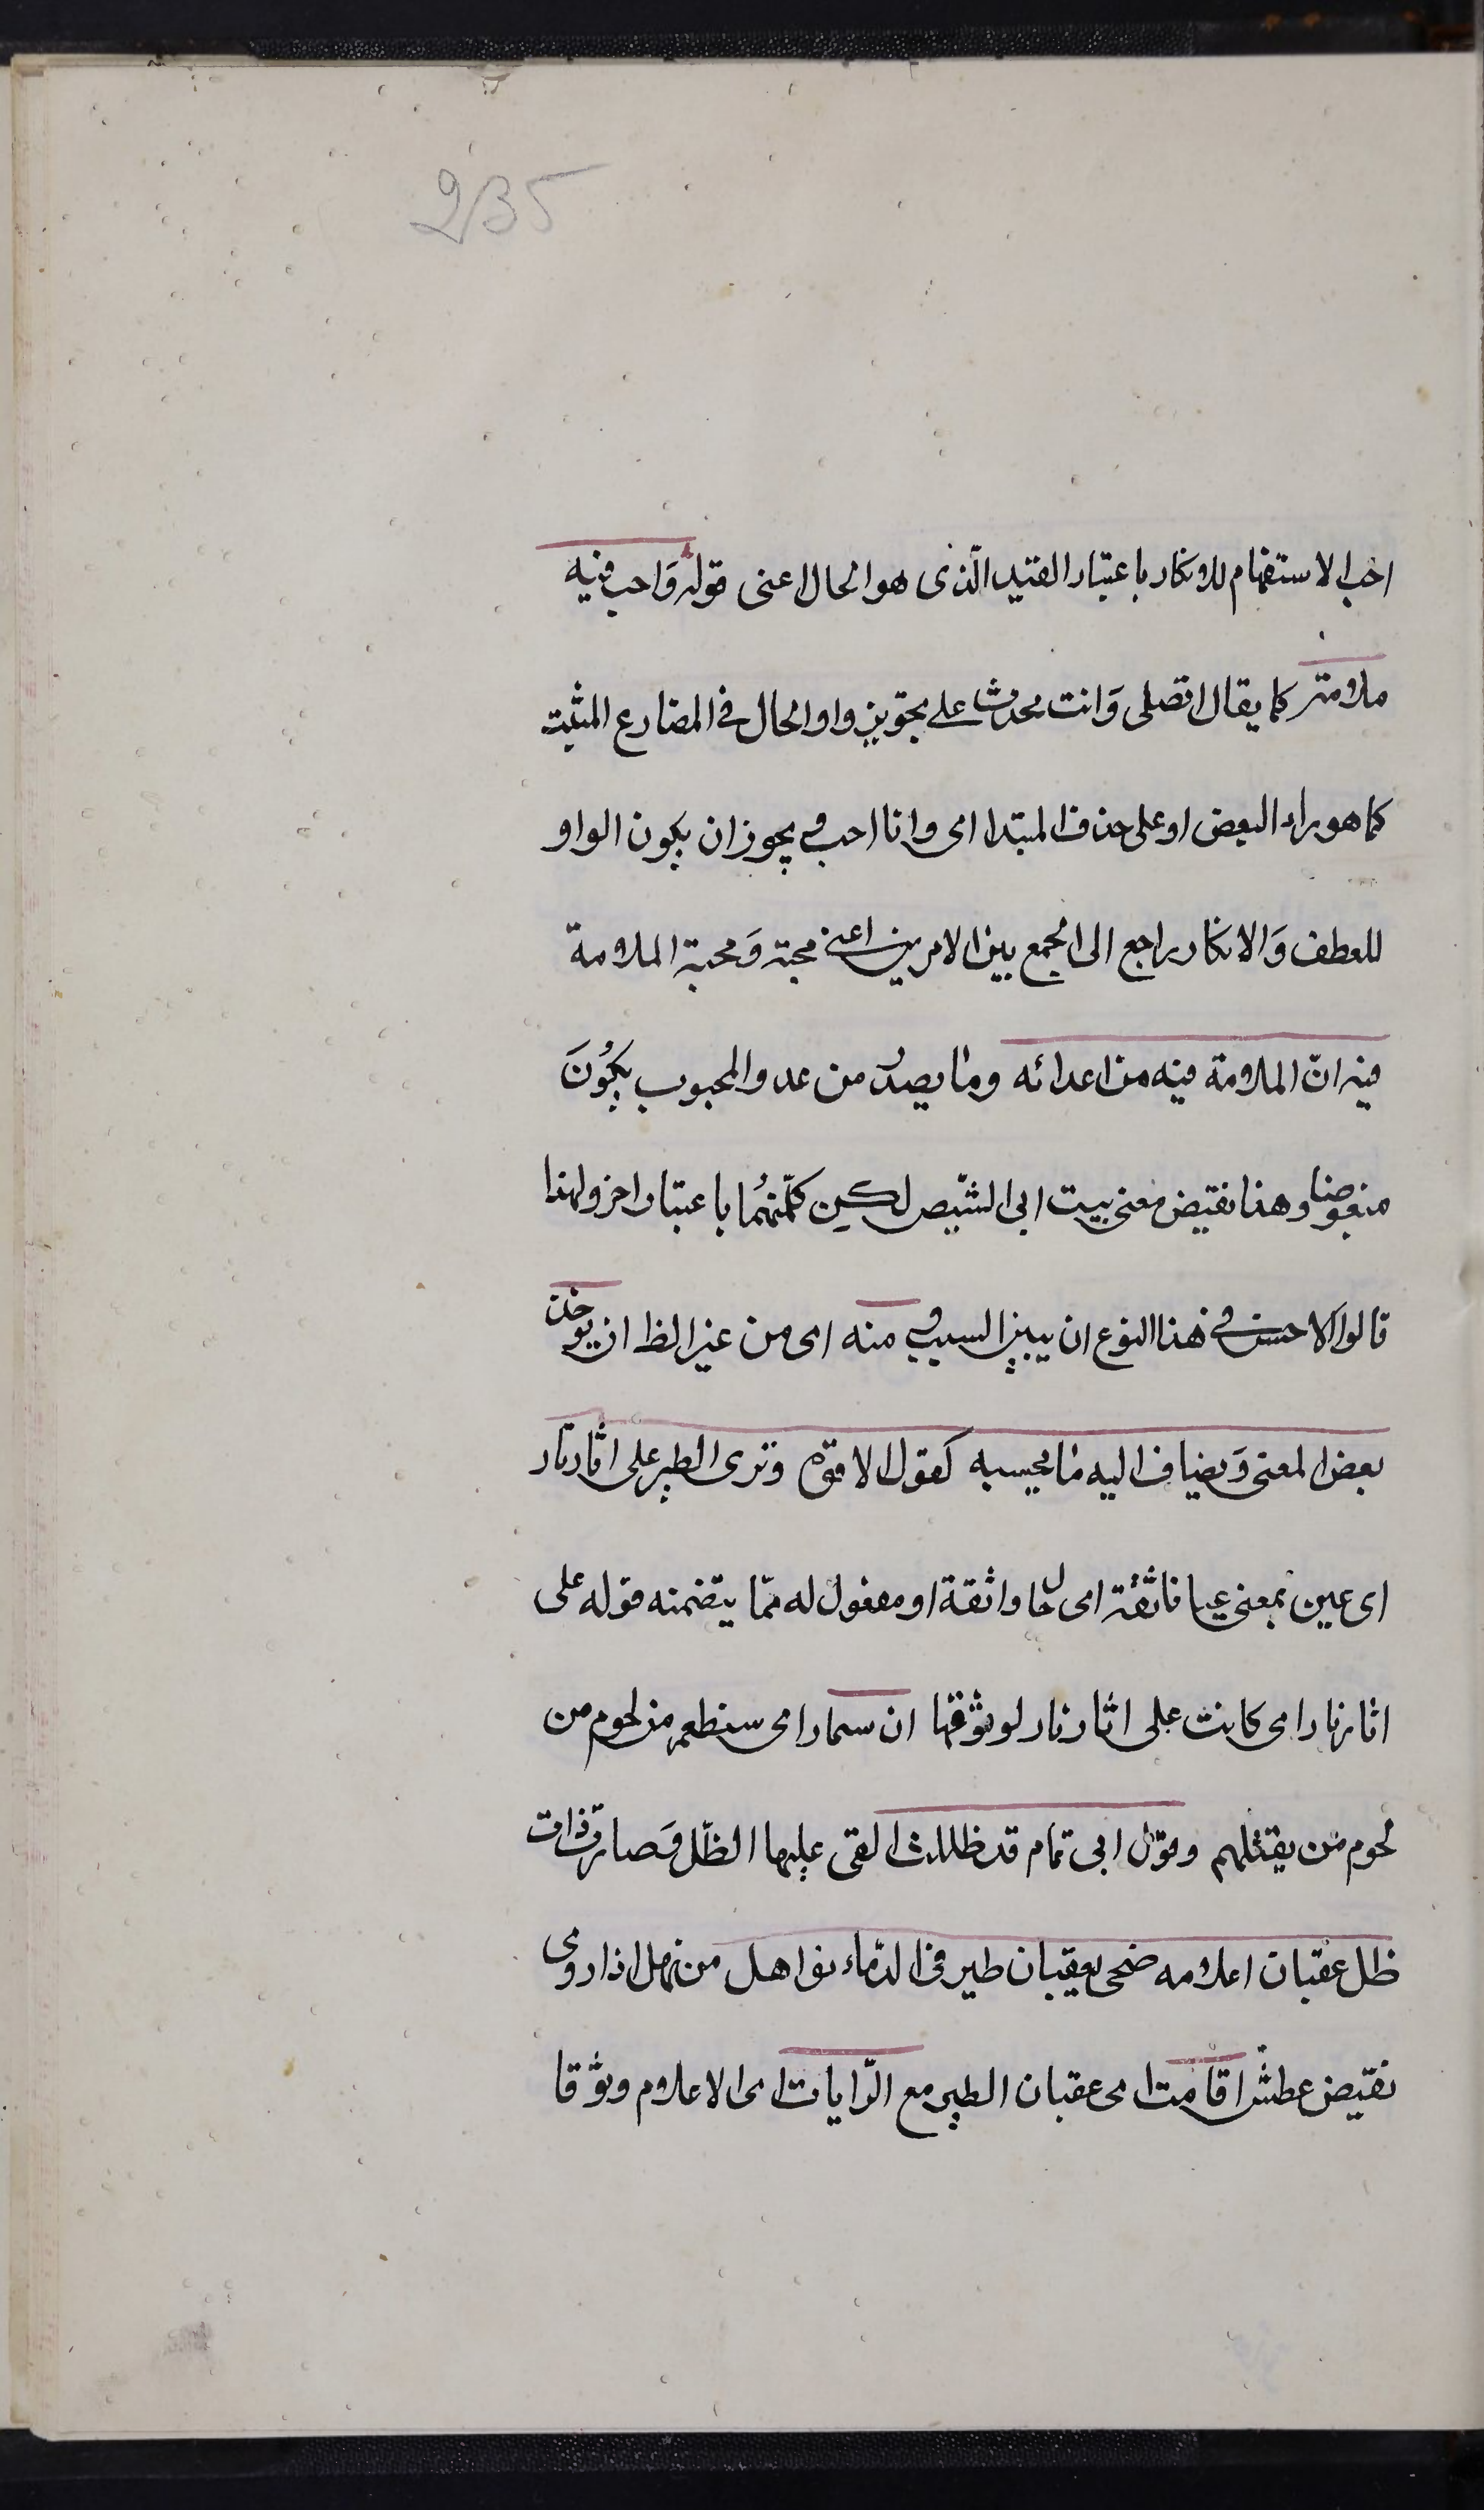 235
احبه الاستفهام للانكار باعتبار القيد الّذى هو الحال اعنى قوله وَاحب فيه
ملامة كما يقال اتصلى وَانت محدث على تجويز واو الحال فى المضارع المثبت
كما هو راى البعض او على حذف المبتدا اى وانا احب ويجوز ان يكون الواو
للعطف وَالانكار راجع الى الجمع بين الامرين اعنى محبته وَمحبة الملامة
فيه انّ الملامة فيه من اعدائه وما يصدر من عدو المحبوب يكُونَ
مبغوضا وهذا نقيض معنى بيت ابى الشّيص لكن كلّ منهُما باعتبار اخر ولهذا
قالوا الاحسن فى هذا النوع ان يبين السبب ومنه اى من غير الظ ان يوخذ
بعض المعنى وَيضاف اليه ما يحسنه كقول الافوه وترى الطير على اثارنار
اى عين بمعنى عيانا ثقة اى حال واثقة او مفعول له ممّا يتضمنه قوله على
اثارنار اى كانت على اثارنار لوثوقها ان ستمار اى ستطعم من لحوم من
لحوم من يقتلهم وقول ابى تمام قد ظللت القى عليها الظّل وَصارت ذات
ظل عقبان اعلامه ضحى بعقبان طير فى الدّماء نواهل من نهل اذا روى
نقيض عطش اقامت اى عقبان الطير مع الرّايات اى الاعلام وثوقا